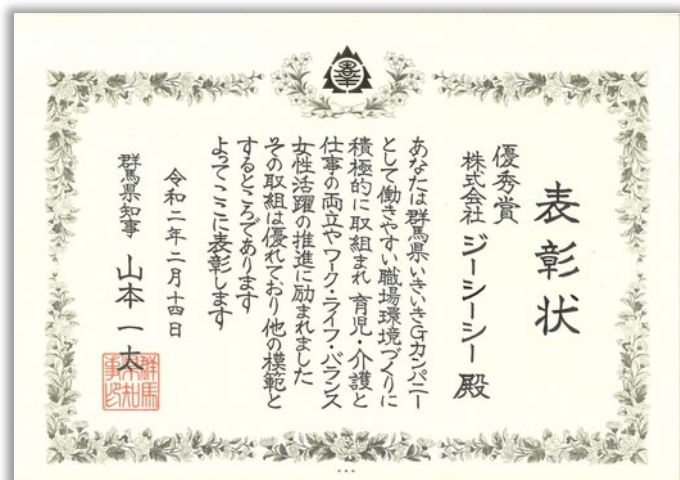 表彰状
優秀賞
株式会社 ジーシーシー 殿
あなたは群馬県いきいきGカンパニー
として働きやすい職場環境づくりに
積極的に取組まれ 育児・介護と
仕事の両立やワーク・ライフ・バランス
女性活躍の推進に励まれました
その取組は優れており他の模範と
するところであります
よってここに表彰します
令和二年二月十四日
群馬県知事 山本一太
群馬県知事印